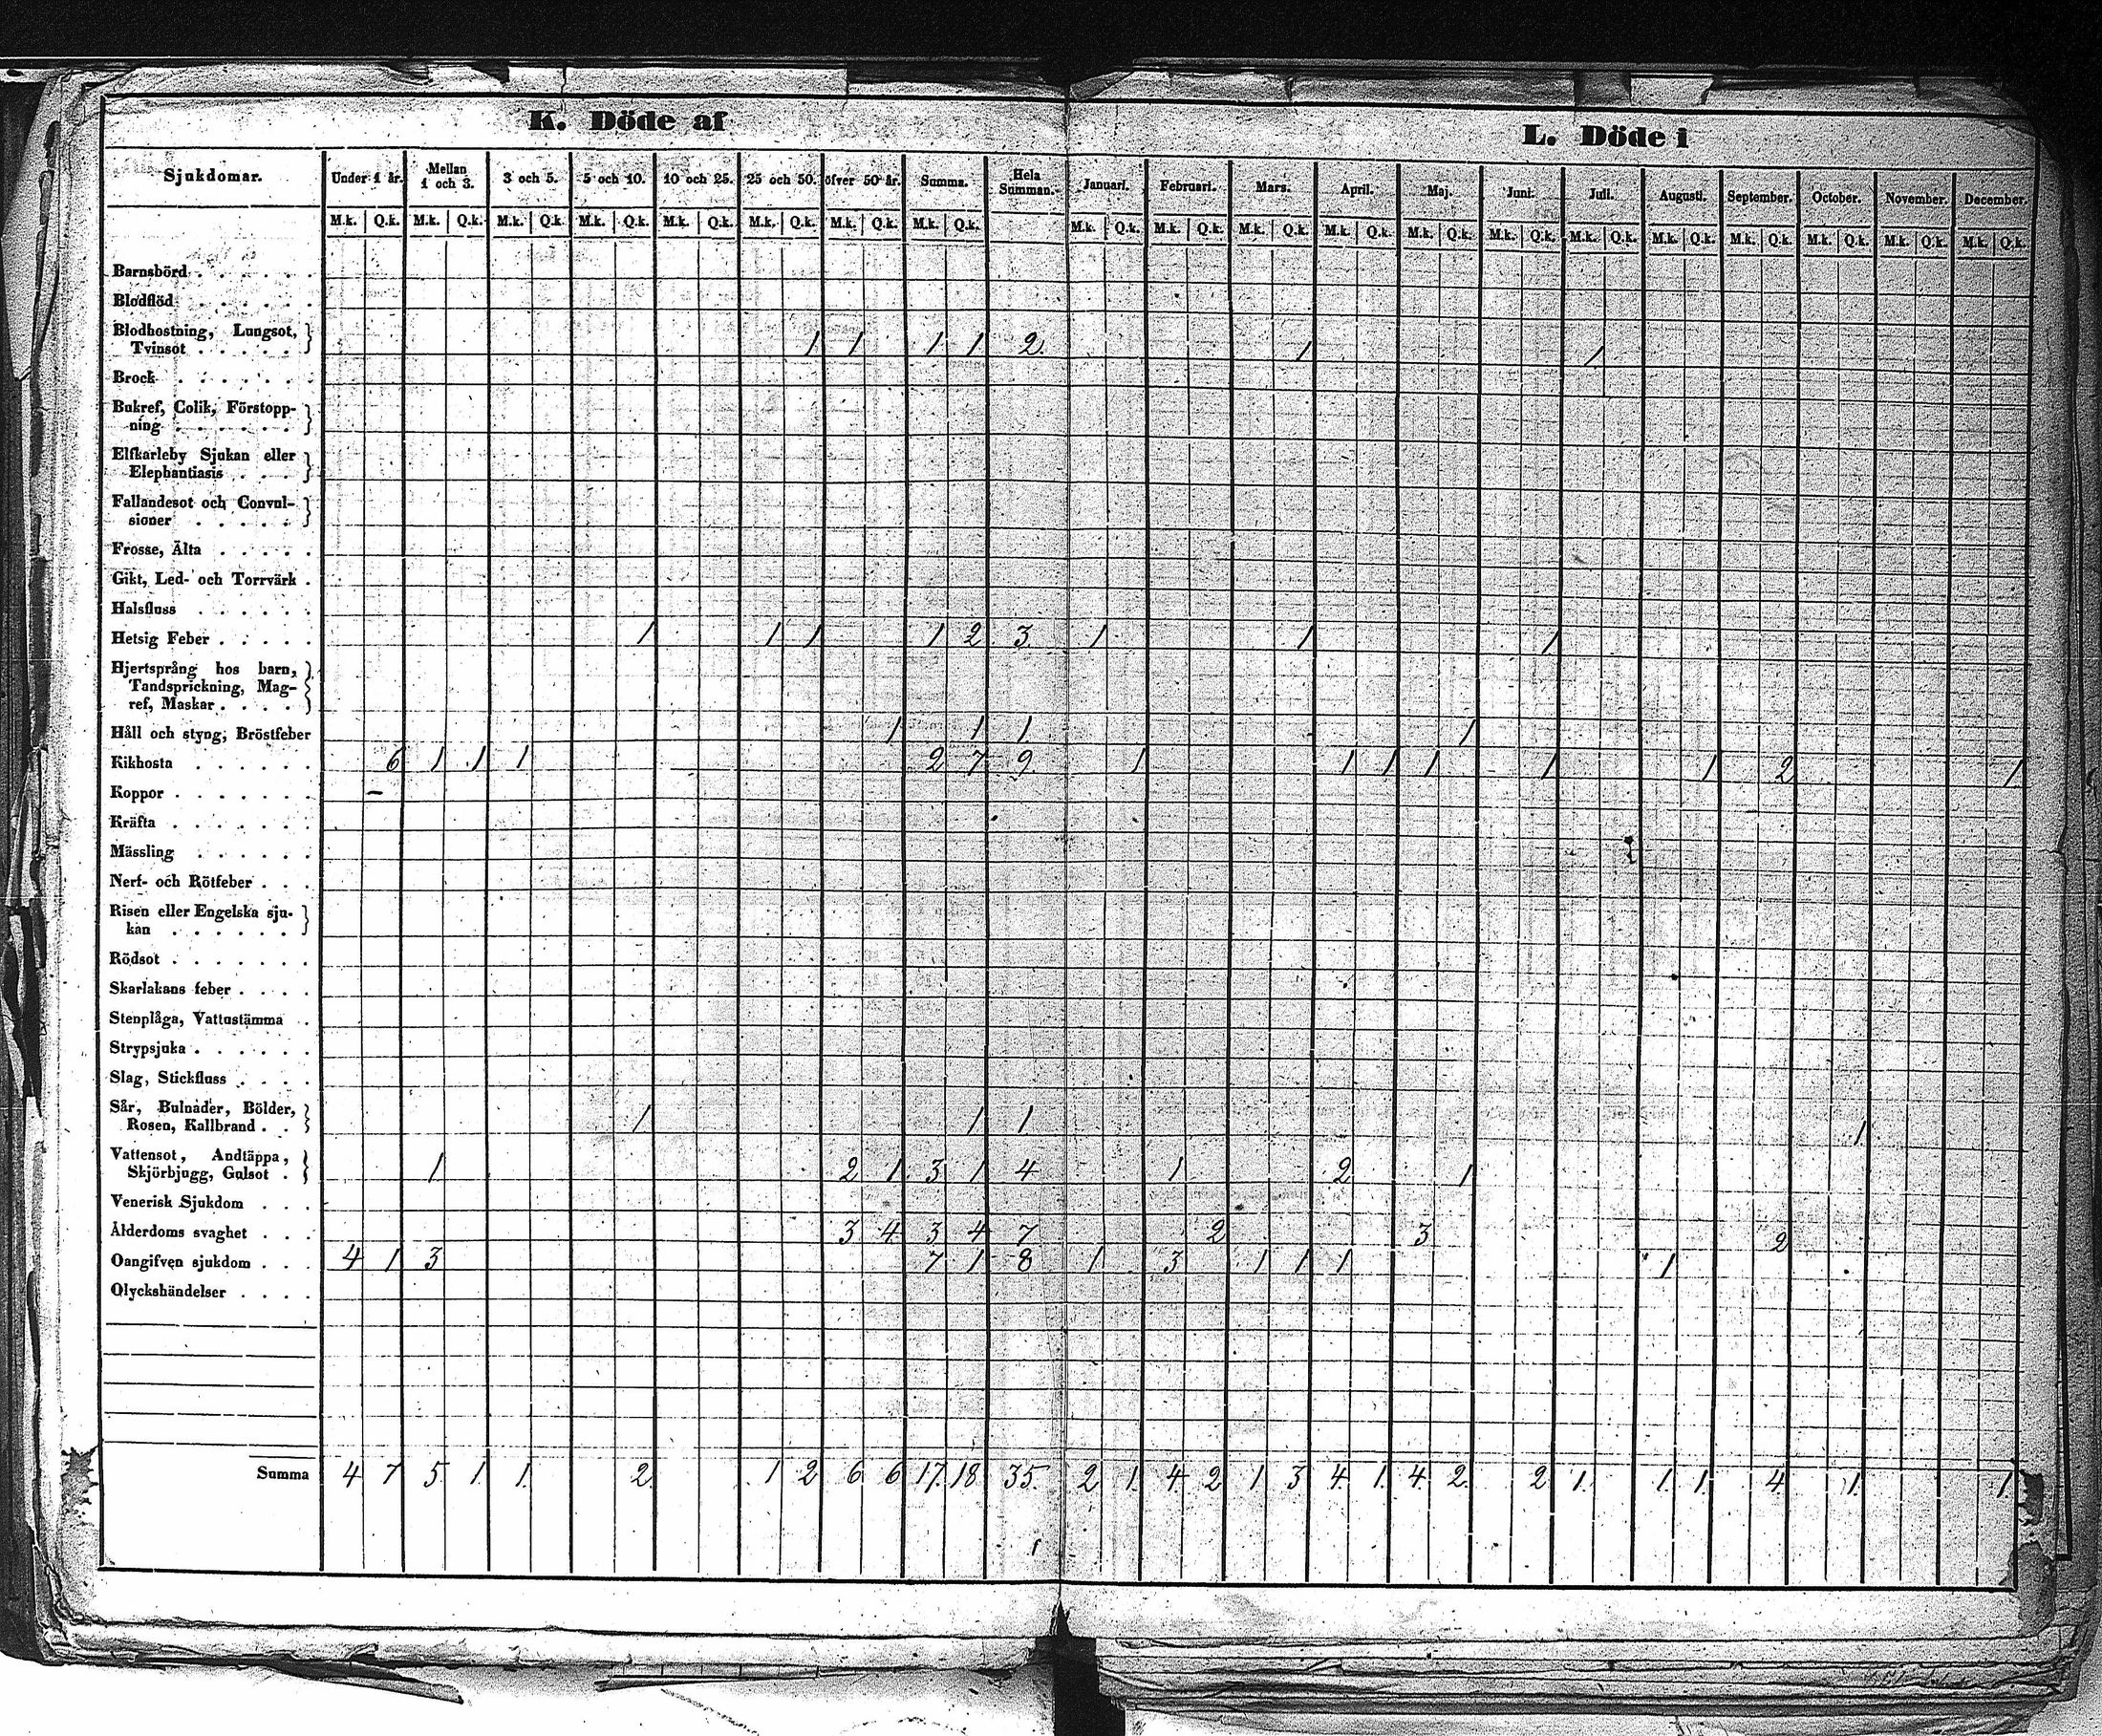 K. Döde af
L. Döde i
Sjukdomar. Under 1 år. Mellan 1 och 3. 3 och 5. 5 och 10. 10 och 25. 25 och 50. öfver 50 år. Summa. Hela Summan. Januari. Februari. Mars. April. Maj. Juni. Juli. Augusti. September. October. November. December.
M.k. Q.k. M.k. Q.k. M.k. Q.k. M.k. Q.k. M.k. Q.k. M.k. Q.k. M.k. Q.k. M.k. Q.k. M.k. Q.k. M.k. Q.k. M.k. Q.k. M.k. Q.k. M.k. Q.k. M.k. Q.k. M.k. Q.k. M.k. Q.k. M.k. Q.k. M.k. Q.k. M.k. Q.k. M.k. Q.k.
Barnsbörd
Blodflöd
Blodhostning, Lungsot,
Tvinsot 1 1 1 1 2. 1 1
Brock
Bukref, Colik, Förstopp-
ning
Elfkarleby Sjukan eller
Elephantiasis
Fallandesot och Convul-
sioner
Frosse, Älta
Gikt, Led- och Torrvärk
Halsfluss
Hetsig Feber 1 1 1 1 2 3. 1 1 1
Hjertsprång hos barn,
Tandsprickning, Mag-
ref, Maskar
Håll och styng, Bröstfeber 1 1 1. 1
Kikhosta 6 1 1 1 2 7 9. 1 1 1 1 1 1 2 1
Koppor -
Kräfta
Mässling
Nerf- och Rötfeber
Risen eller Engelska sju-
kan
Rödsot
Skarlakans feber
Stenplåga, Vattustämma
Strypsjuka
Slag, Stickfluss
Sår, Bulnader, Bölder,
Rosen, Kallbrand 1 1 1. 1
Vattensot, Andtäppa,
Skjörbjugg, Gulsot 1 2 1 3 1 4 1 2 1
Venerisk Sjukdom
Ålderdoms svaghet 3 4 3 4 7 2 3 2
Oangifven sjukdom 4 1 3 7 1 8 1 3 1 1 1 1
Olyckshändelser
Summa 4 7 5 1 1. 2. 1 2 6 6 17. 18 35. 2 1. 4 2 1 3 4. 1. 4 2. 2 1. 1 1. 4 1. 1.